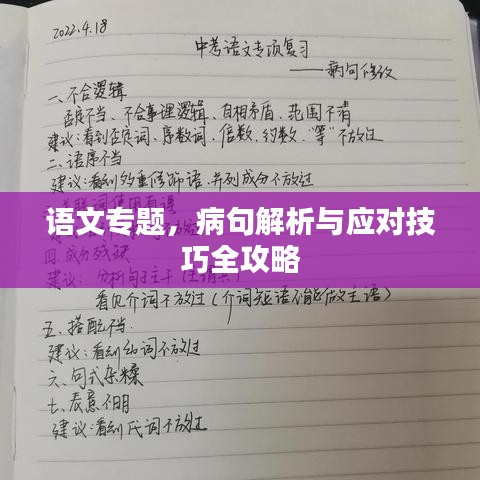 2022.4.18
中考语文专项复习
——病句修改
一、不合逻辑
否定不当、不合事理逻辑、自相矛盾、范围不清
建议:看到否定词、序数词、倍数、约数、"等"不放过
二、语序不当
建议:看到多重修饰语、并列成分不放过
语文专题,病句解析与应对技
巧全攻略
四、成分残缺
建议:分析句子主干
看见介词不放过(介词短语不能做主语)
五、搭配不当
建议:看到动词不放过
六、句式杂糅
七、表意不明
建议:看到代词不放过